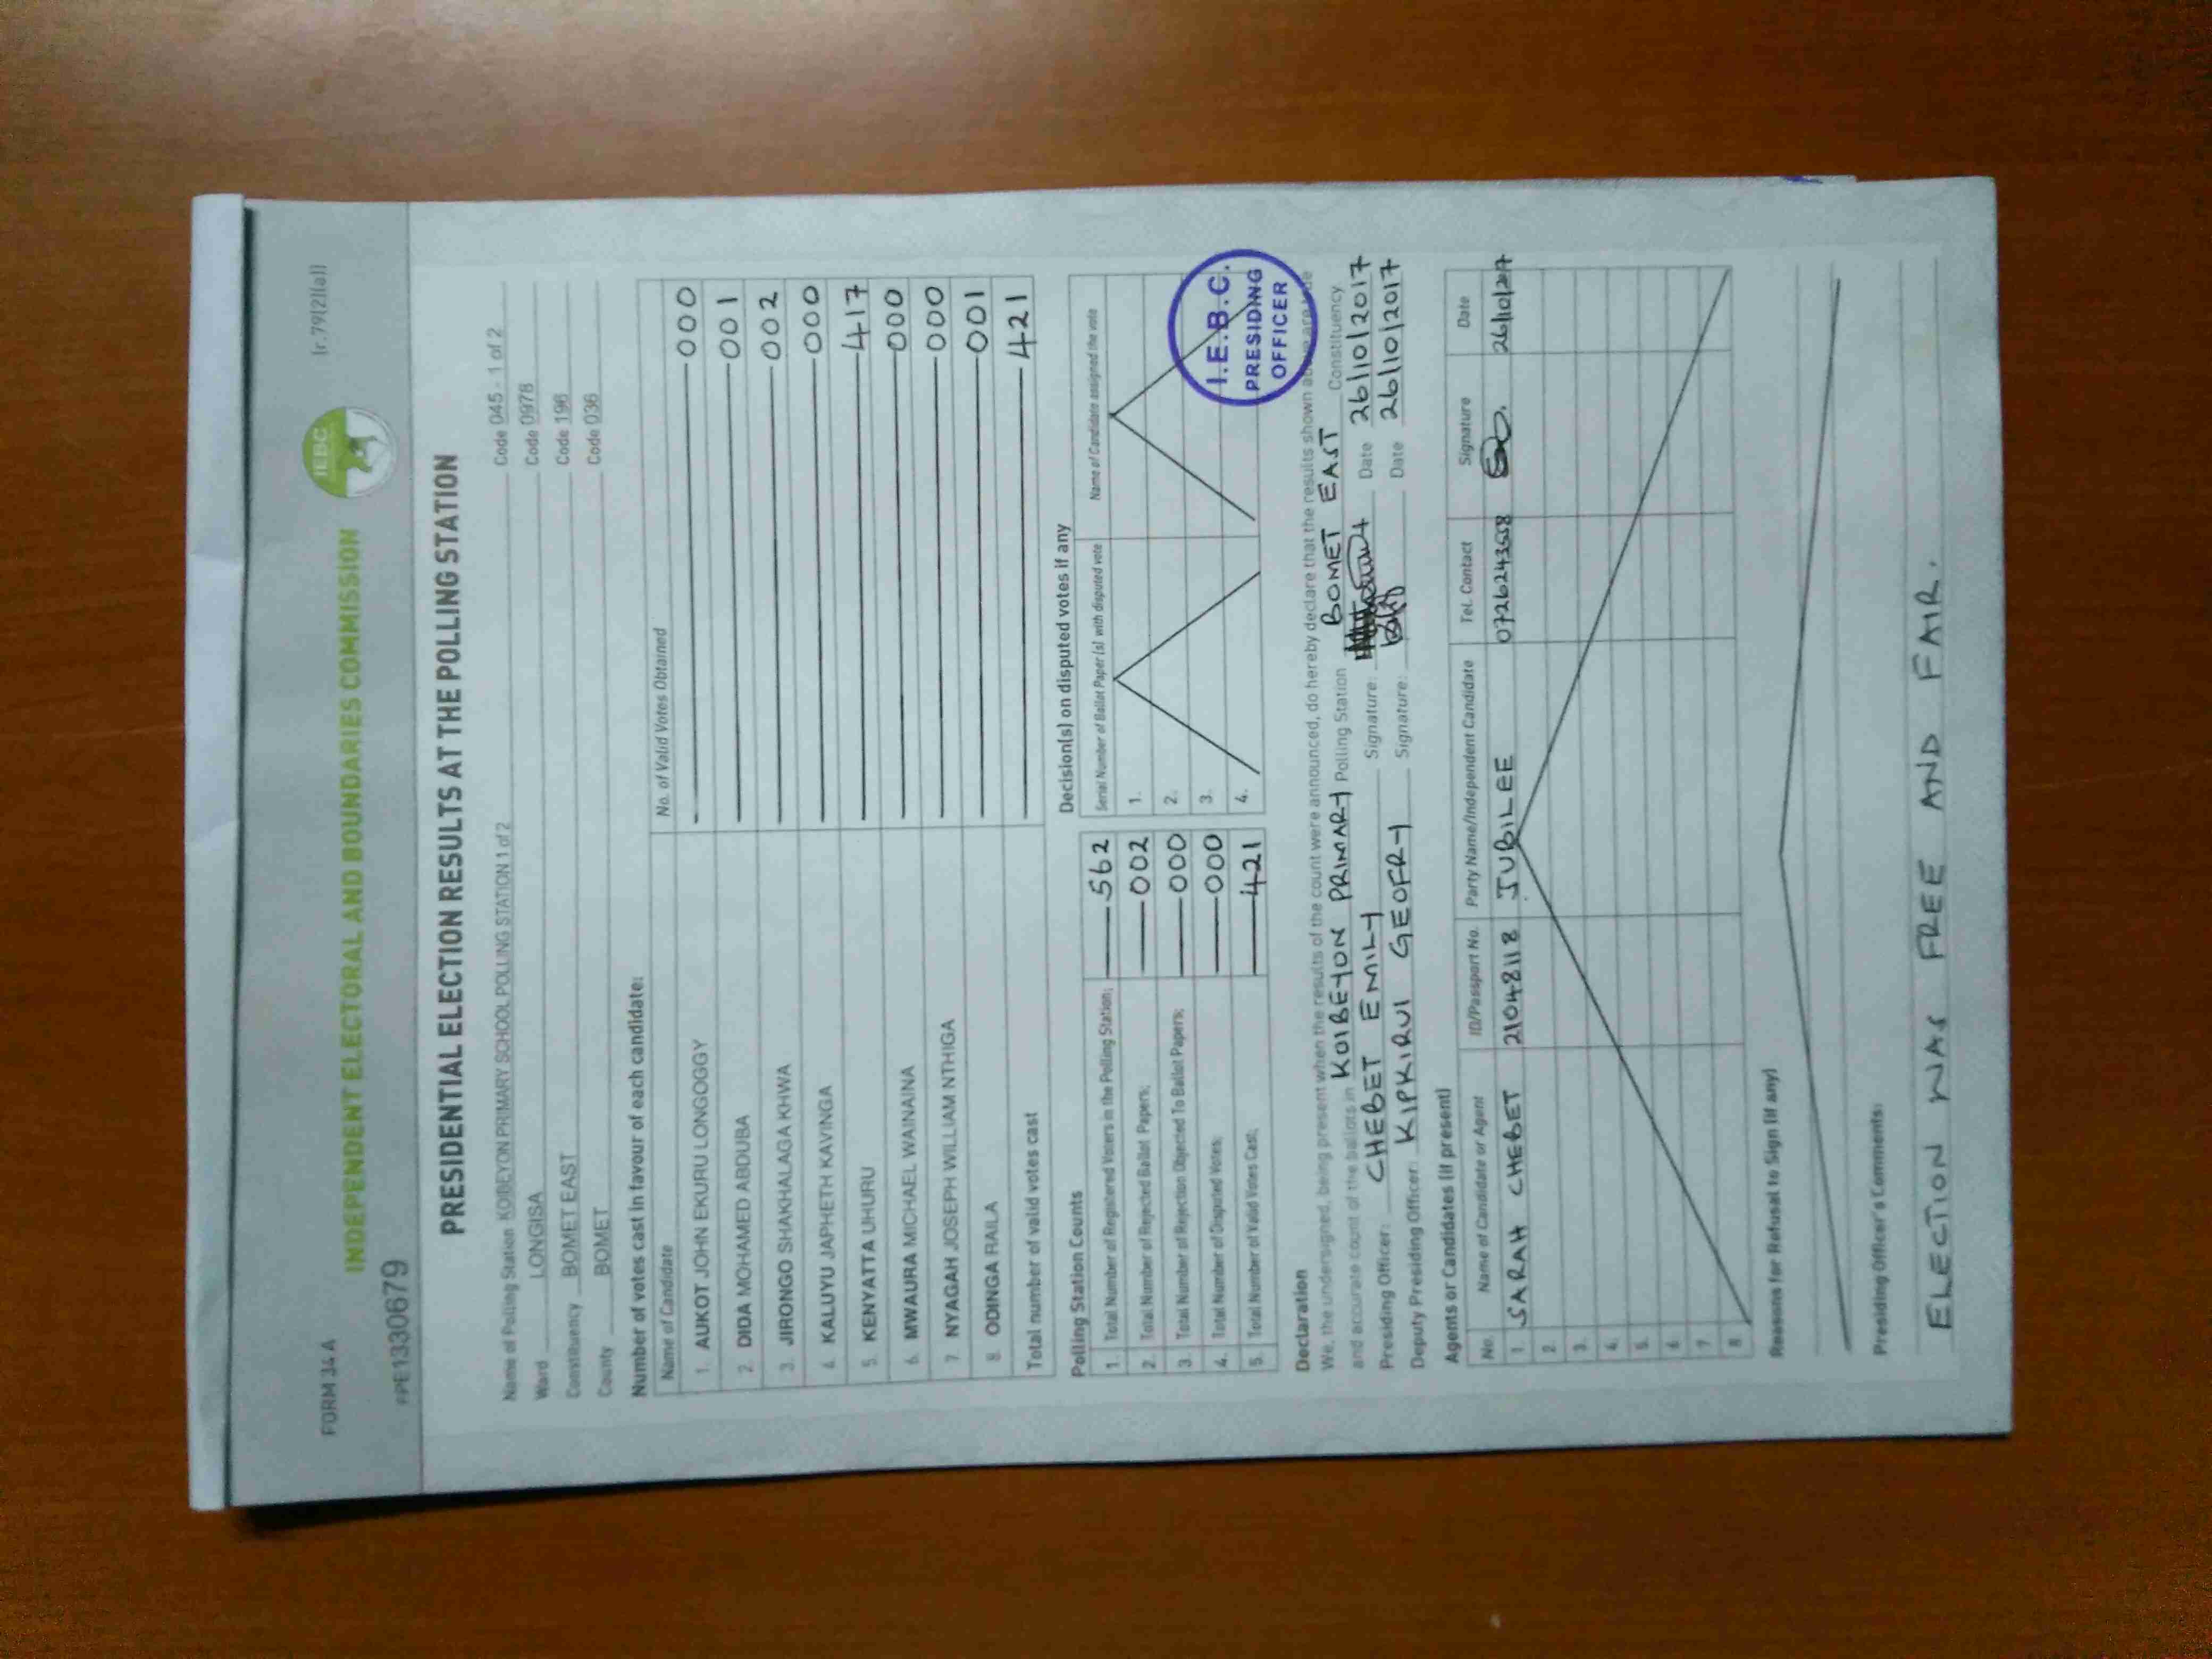 FORM 34 A
(r.79(2)(a))
IEBC
INDEPENDENT ELECTORAL AND BOUNDARIES COMMISSION
PPE1330679
PRESIDENTIAL ELECTION RESULTS AT THE POLLING STATION
Name of Polling Station KOIBEYON PRIMARY SCHOOL POLLING STATION 1 of 2 Code 045 - 1 of 2
Ward LONGISA Code 0978
Constituency BOMET EAST Code 196
County BOMET Code 036
Number of votes cast in favour of each candidate:
Name of Candidate No. of Valid Votes Obtained
1. AUKOT JOHN EKURU LONGOGGY 000
2. DIDA MOHAMED ABDUBA 001
3. JIRONGO SHAKHALAGA KHWA 002
4. KALUYU JAPHETH KAVINGA 000
5. KENYATTA UHURU 417
6. MWAURA MICHAEL WAINAINA 000
7. NYAGAH JOSEPH WILLIAM NTHIGA 000
8. ODINGA RAILA 001
Total number of valid votes cast 421
Polling Station Counts
1. Total Number of Registered Voters in the Polling Station; 562
2. Total Number of Rejected Ballot Papers; 002
3. Total Number of Rejection Objected To Ballot Papers; 000
4. Total Number of Disputed Votes; 000
5. Total Number of Valid Votes Cast; 421
Decision(s) on disputed votes if any
Serial Number of Ballot Paper(s) with disputed vote Name of Candidate assigned the vote
1.
2.
3.
4.
I.E.B.C.
PRESIDING
OFFICER
Declaration
We, the undersigned, being present when the results of the count were announced, do hereby declare that the results shown above are true
and accurate count of the ballots in KOIBEYON PRIMARY Polling Station BOMET EAST Constituency
Presiding Officer: CHEBET EMILY Signature: Date 26/10/2017
Deputy Presiding Officer: KIPKIRUI GEOFRY Signature: Date 26/10/2017
Agents or Candidates (if present)
No. Name of Candidate or Agent ID/Passport No. Party Name/Independent Candidate Tel. Contact Signature Date
1. SARAH CHEBET 21048118 JUBILEE 0726243658 26/10/2017
2.
3.
4.
5.
6.
7.
8
Reasons for Refusal to Sign (if any)
Presiding Officer's Comments:
ELECTION WAS FREE AND FAIR.